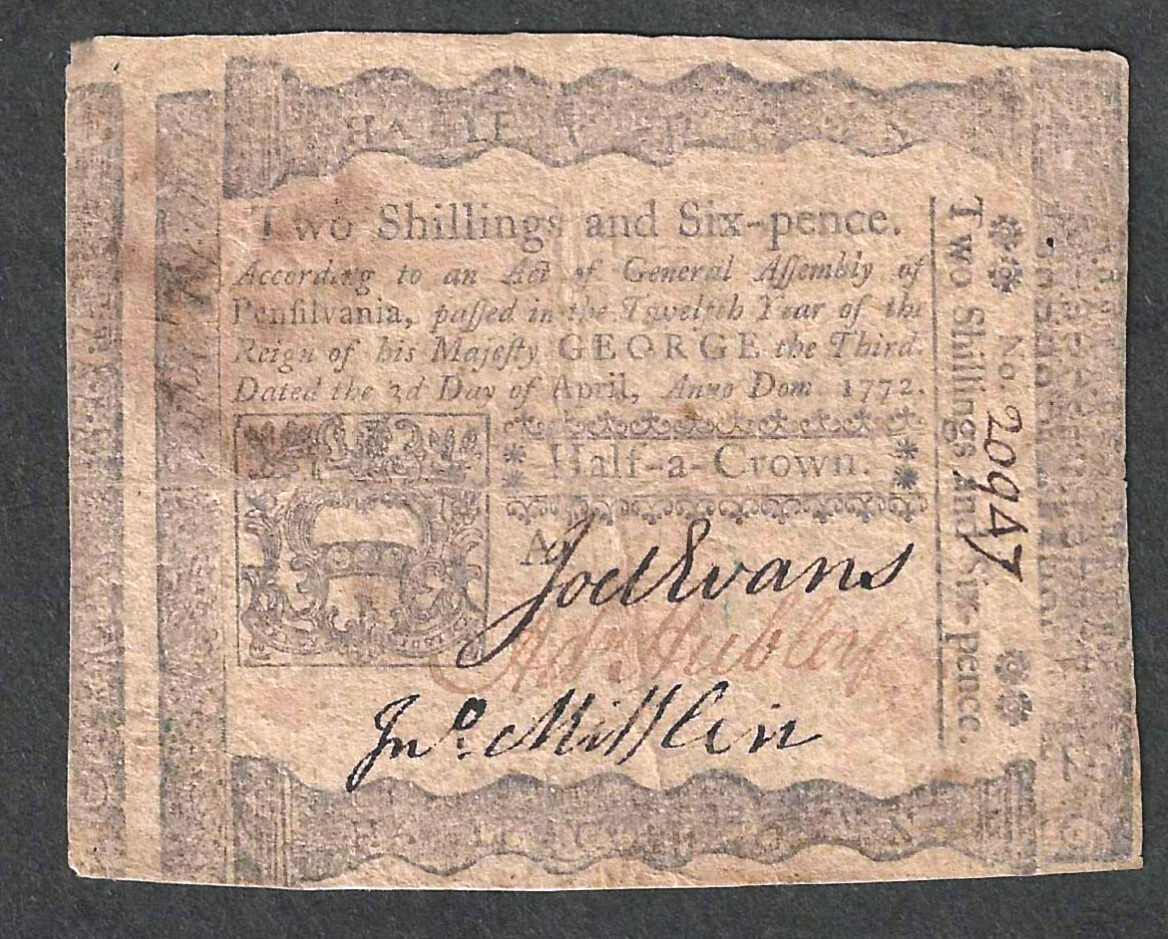 HALF
Two Shillings and Six-pence.
According to an Act of General Aſſembly of
Penſilvania, paſſed in the Twelfth Year of the
Reign of his Majeſty GEORGE the Third.
Dated the 3d Day of April, Anno Dom. 1772.
Half-a-Crown.
Joel Evans
Adm Hubley
Jno. Mifflin
No. 20947
Two Shillings and Six-pence.